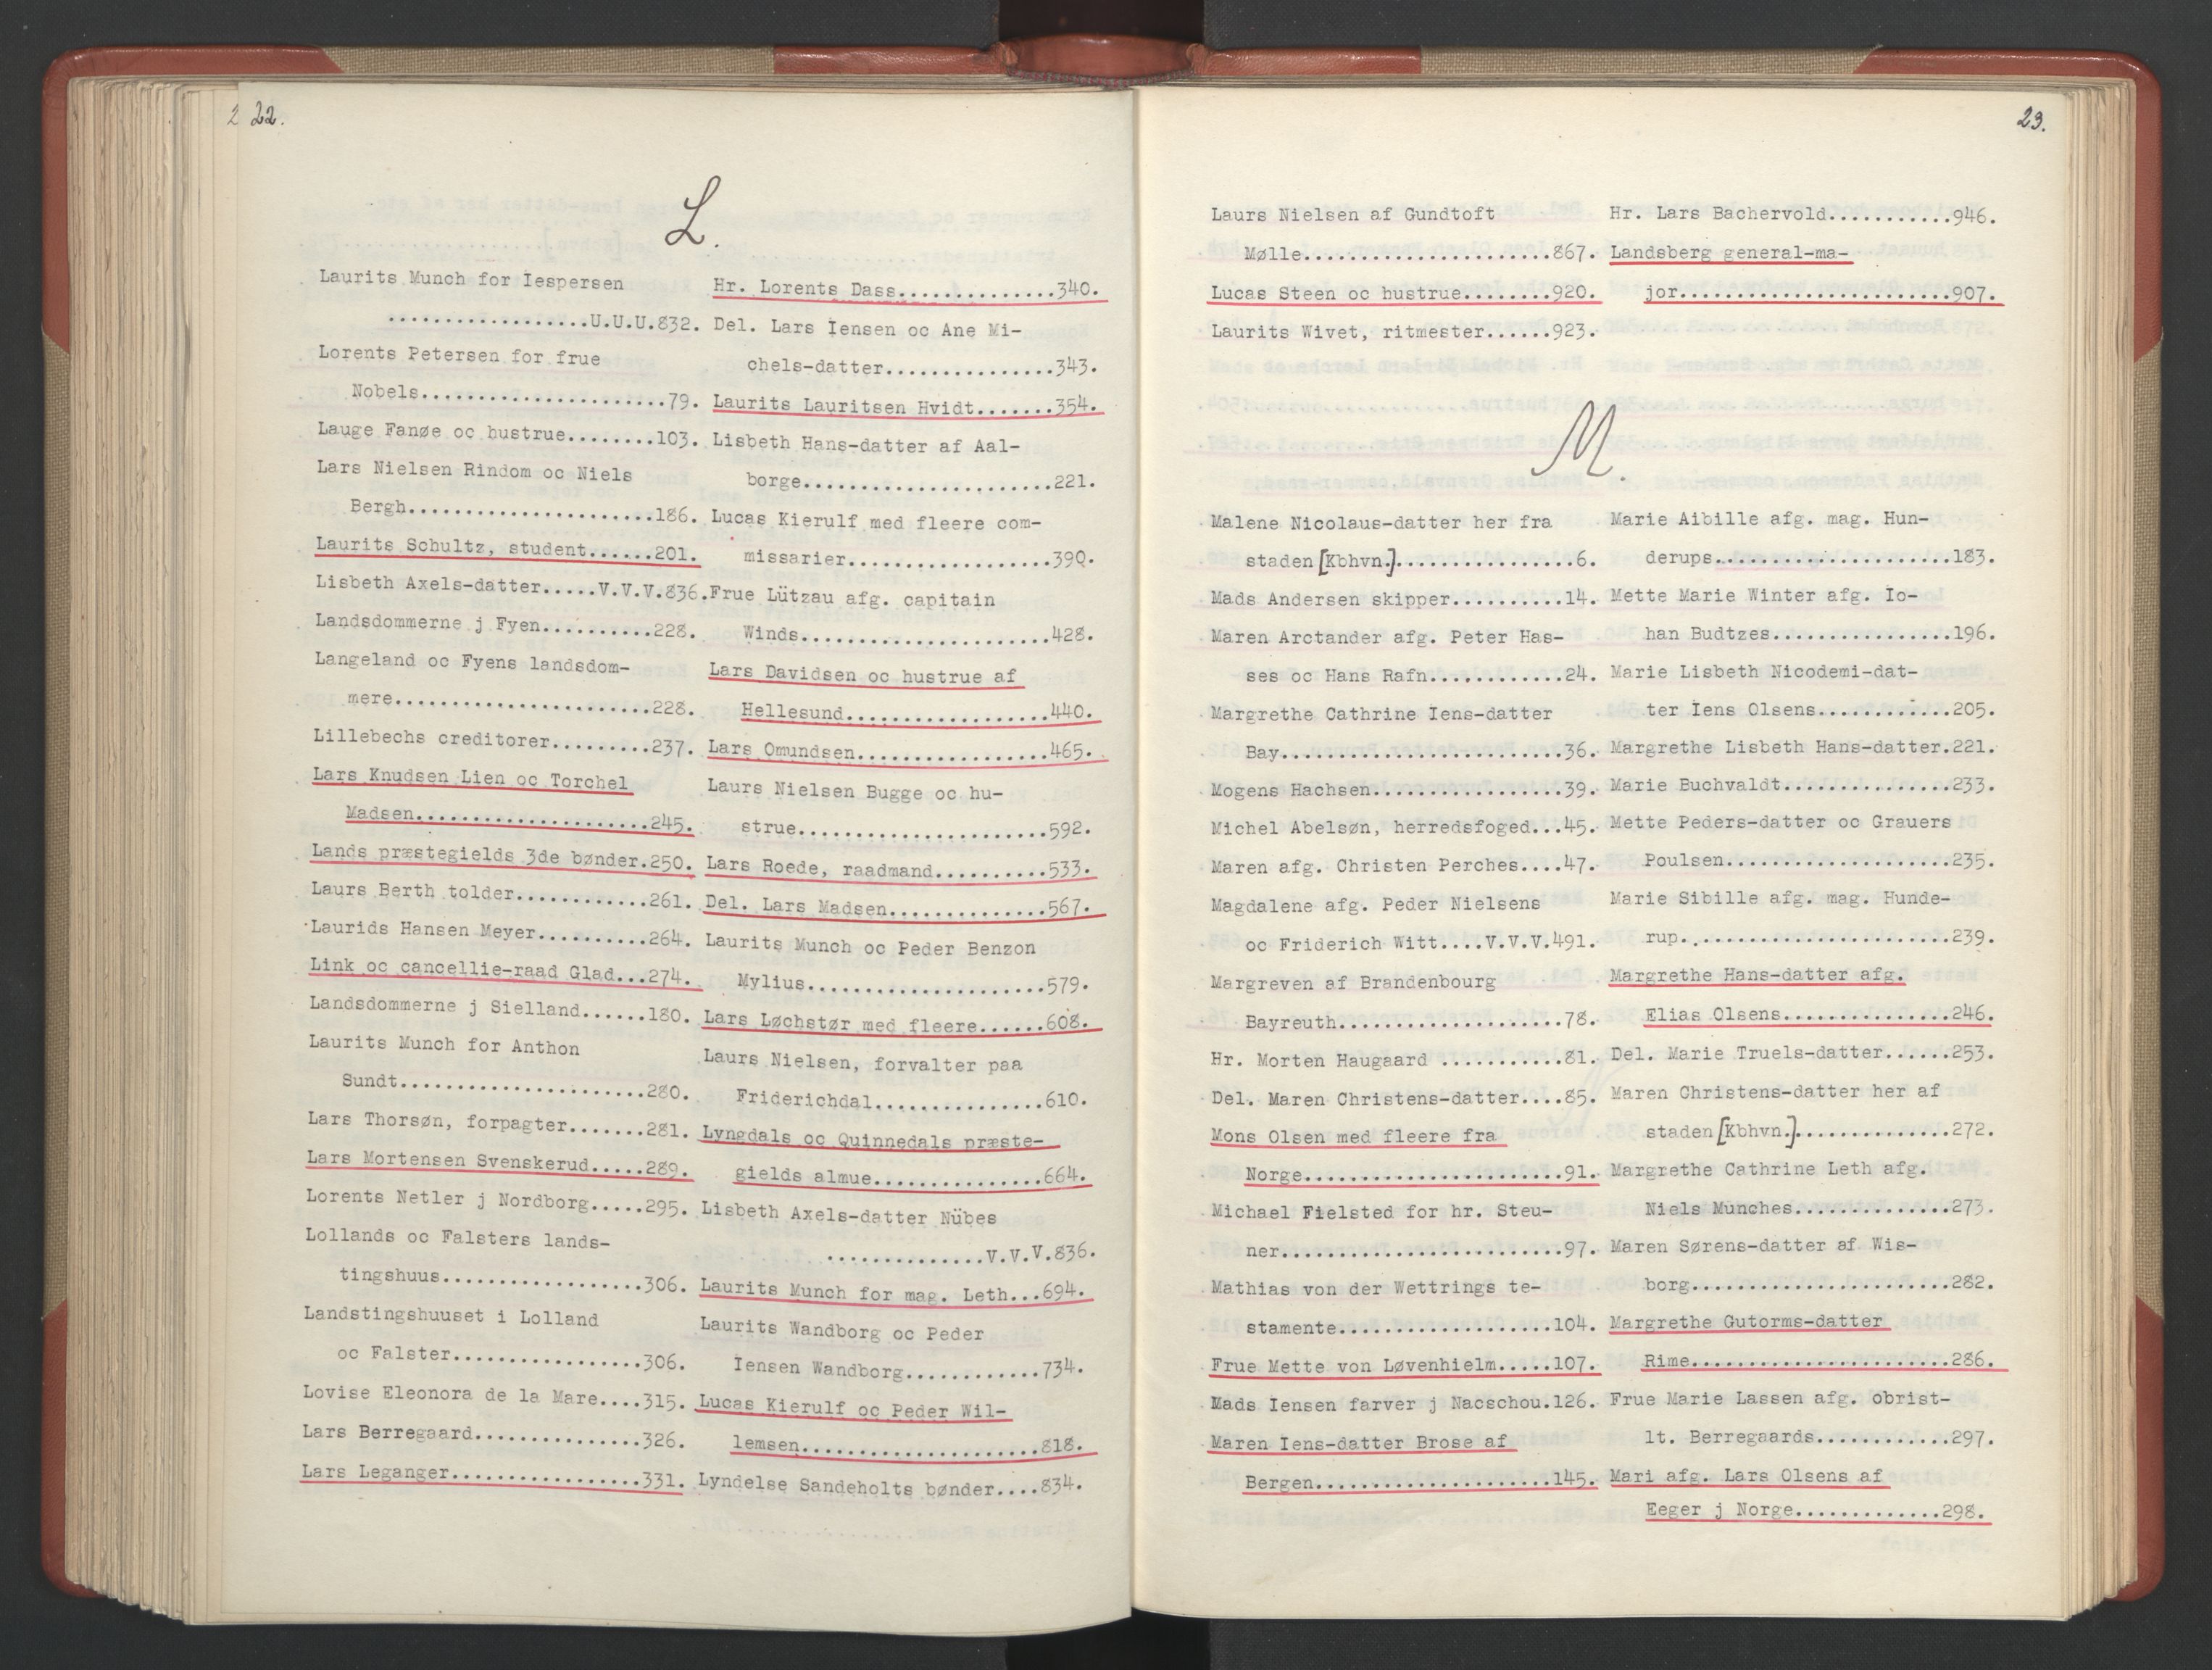 2 22.
L.
Laurits Munch for Iespersen
..................U.U.U.832.
Lorents Petersen for frue
Nobels.....................79.
Lauge Fanøe oc hustrue........103.
Lars Nielsen Rindom oc Niels
Bergh.....................186.
Laurits Schultz, student......201.
Lisbeth Axels-datter.....V.V.V.836.
Landsdommerne j Fyen..........228.
Langeland oc Fyens landsdom-
mere......................228.
Lillebechs creditorer.........237.
Lars Knudsen Lien oc Torchel
Madsen....................245.
Lands præstegields 3de bønder.250.
Laurs Berth tolder............261.
Laurids Hansen Meyer..........264.
Link oc cancellie-raad Glad...274.
Landsdommerne j Sielland......180.
Laurits Munch for Anthon
Sundt.....................280.
Lars Thorsøn, forpagter.......281.
Lars Mortensen Svenskerud.....289.
Lorents Netler j Nordborg.....295.
Lollands oc Falsters lands-
tingshuus.................306.
Landstingshuuset i Lolland
oc Falster................306.
Lovise Eleonora de la Mare....315.
Lars Berregaard...............326.
Lars Leganger.................331.
Hr. Lorents Dass..............340.
Del. Lars Iensen oc Ane Mi-
chels-datter...............343.
Laurits Lauritsen Hvidt.......354.
Lisbeth Hans-datter af Aal-
borge......................221.
Lucas Kierulf med fleere com-
missarier..................390.
Frue Lützau afg. capitain
Winds........................428.
Lars Davidsen oc hustrue af
Hellesund..................440.
Lars Omundsen.................465.
Laurs Nielsen Bugge oc hu-
strue......................592.
Lars Roede, raadmand..........533.
Del. Lars Madsen..............567.
Laurits Munch oc Peder Benzon
Mylius.....................579.
Lars Løchstør med fleere......608.
Laurs Nielsen, forvalter paa
Friderichdal...............610.
Lyngdals oc Quinnedals præste-
gields almue...............664.
Lisbeth Axels-datter Nübes
..............V.V.V.836.
Laurits Munch for mag. Leth...694.
Laurits Wandborg oc Peder
Iensen Wandborg............734.
Lucas Kierulf oc Peder Wil-
lemsen.....................818.
Lyndelse Sandeholts bønder....834.
23.
Laurs Nielsen af Gundtoft
Mølle......................867.
Lucas Steen oc hustrue........920.
Laurits Wivet, ritmester......923.
Hr. Lars Bachervold...........946.
Landsberg general-ma-
jor........................907.
M.
Malene Nicolaus-datter her fra
staden [Kbhvn.]................6.
Mads Andersen skipper..........14.
Maren Arctander afg. Peter Has-
ses oc Hans Rafn............24.
Margrethe Cathrine Iens-datter
Bay.........................36.
Mogens Hachsen.................39.
Michel Abelsøn, herredsfoged...45.
Maren afg. Christen Perches....47.
Magdalene afg. Peder Nielsens
oc Friderich Witt....V.V.V.491.
Margreven af Brandenbourg
Bayreuth....................78.
Hr. Morten Haugaard ...........81.
Del. Maren Christens-datter....85.
Mons Olsen med fleere fra
Norge.......................91.
Michael Fielsted for hr. Steu-
ner.........................97.
Mathias von der Wettrings te-
stamente...................104.
Frue Mette von Løvenhielm.....107.
Mads Iensen farver j Nacschou.126.
Maren Iens-datter Brose af
Bergen.....................145.
Marie Aibille afg. mag. Hun-
derups.....................183.
Mette Marie Winter afg. Io-
han Budtzes................196.
Marie Lisbeth Nicodemi-dat-
ter Iens Olsens............205.
Margrethe Lisbeth Hans-datter.221.
Marie Buchvaldt...............233.
Mette Peders-datter oc Grauers
Poulsen....................235.
Marie Sibille afg. mag. Hunde-
rup........................239.
Margrethe Hans-datter afg.
Elias Olsens...............246.
Del. Marie Truels-datter......253.
Maren Christens-datter her af
staden [Kbhvn.]..............272.
Margrethe Cathrine Leth afg.
Niels Munches..............273.
Maren Sørens-datter af Wis-
borg.......................282.
Margrethe Gutorms-datter
Rime.......................286.
Frue Marie Lassen afg. obrist-
lt. Berregaards............297.
Mari afg. Lars Olsens af
Eeger j Norge.............298.